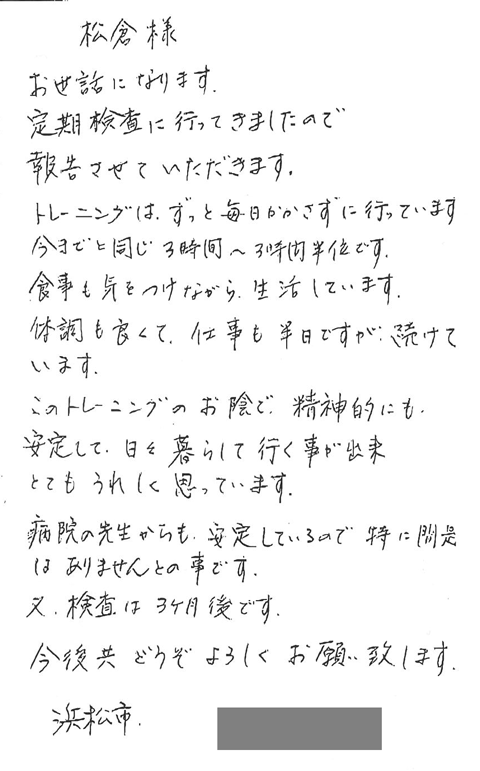 松倉様
お世話になります.
定期検査に行ってきましたので
報告させていただきます。
トレーニングは、ずっと毎日かかさずに行っています
今までと同じ3時間〜3時間半位です.
食事も気をつけながら、生活しています.
体調も良くて、仕事も半日ですが、続けて
います.
このトレーニングのお陰で、精神的にも、
安定して、日々暮らして行く事が出来
とてもうれしく思っています.
病院の先生からも、安定しているので特に問題
はありませんとの事です.
又、検査は3ケ月後です.
今後共どうぞよろしくお願い致します.
浜松市.